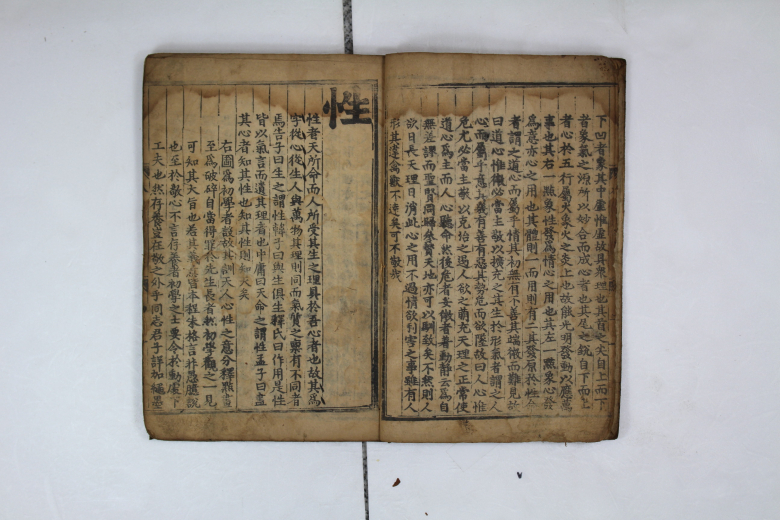 下凹者象其中虛惟虛故具衆理也其首之尖自上而下
者象氣之源所以妙合而成心者也其尾之銳自下而上
者心於五行屬火象火之炎上也故能光明發動以應萬
事也其右一點象性發爲情心之用也其左一點象心發
爲意亦心之用也其體則一而用則有二其發原於性命
者謂之道心而屬乎情其初無有不善其端微而難見故
曰道心惟微必當主敬以擴充之其生於形氣者謂之人
心而屬乎意其幾有善有惡其勢危而欲墜故曰人心惟
危尤必當主敬以克治之遏人欲之萌充天理之正常使
道心爲主而人心聽命然後危者安微者著動靜云爲自
無差謬而聖賢同歸參贊天地亦可以馴致矣不然則人
欲日長天理日消此心之用不過情欲利害之事雖有人
形其違禽獸不遠矣可不敬哉
性
性者天所命而人所受其生之理具於吾心者也故其爲
字從心從生人與萬物其理則同而氣質之禀有不同者
焉告子曰生之謂性韓子曰與生俱生釋氏曰作用是性
皆以氣言而遺其理者也中庸曰天命之謂性孟子曰盡
其心者知其性也知其性則知天矣
右圖爲初學者設故其訓天人心性之意分釋點畫
至爲破碎自當得罪於先生長者然初學觀之一見
可知其大旨也若其義亦皆本程朱格言非愚臆說
也至於敬心不言存養者初學之士要令於動處下
工夫也然存養豈在敬之外乎同志君子詳加繩墨